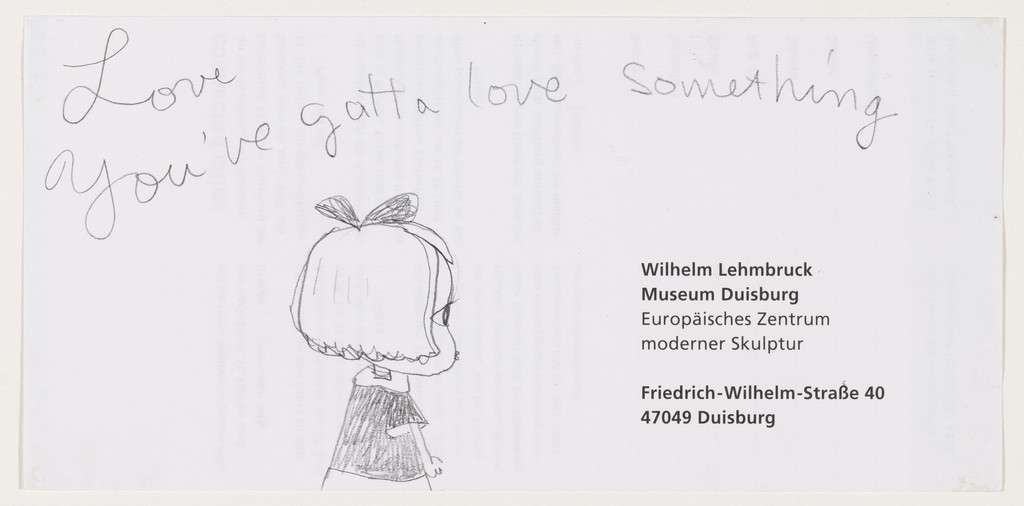 Love
You've gatta love something
Wilhelm Lehmbruck
Museum Duisburg
Europäisches Zentrum
moderner Skulptur
Friedrich-Wilhelm-Straße 40
47049 Duisburg